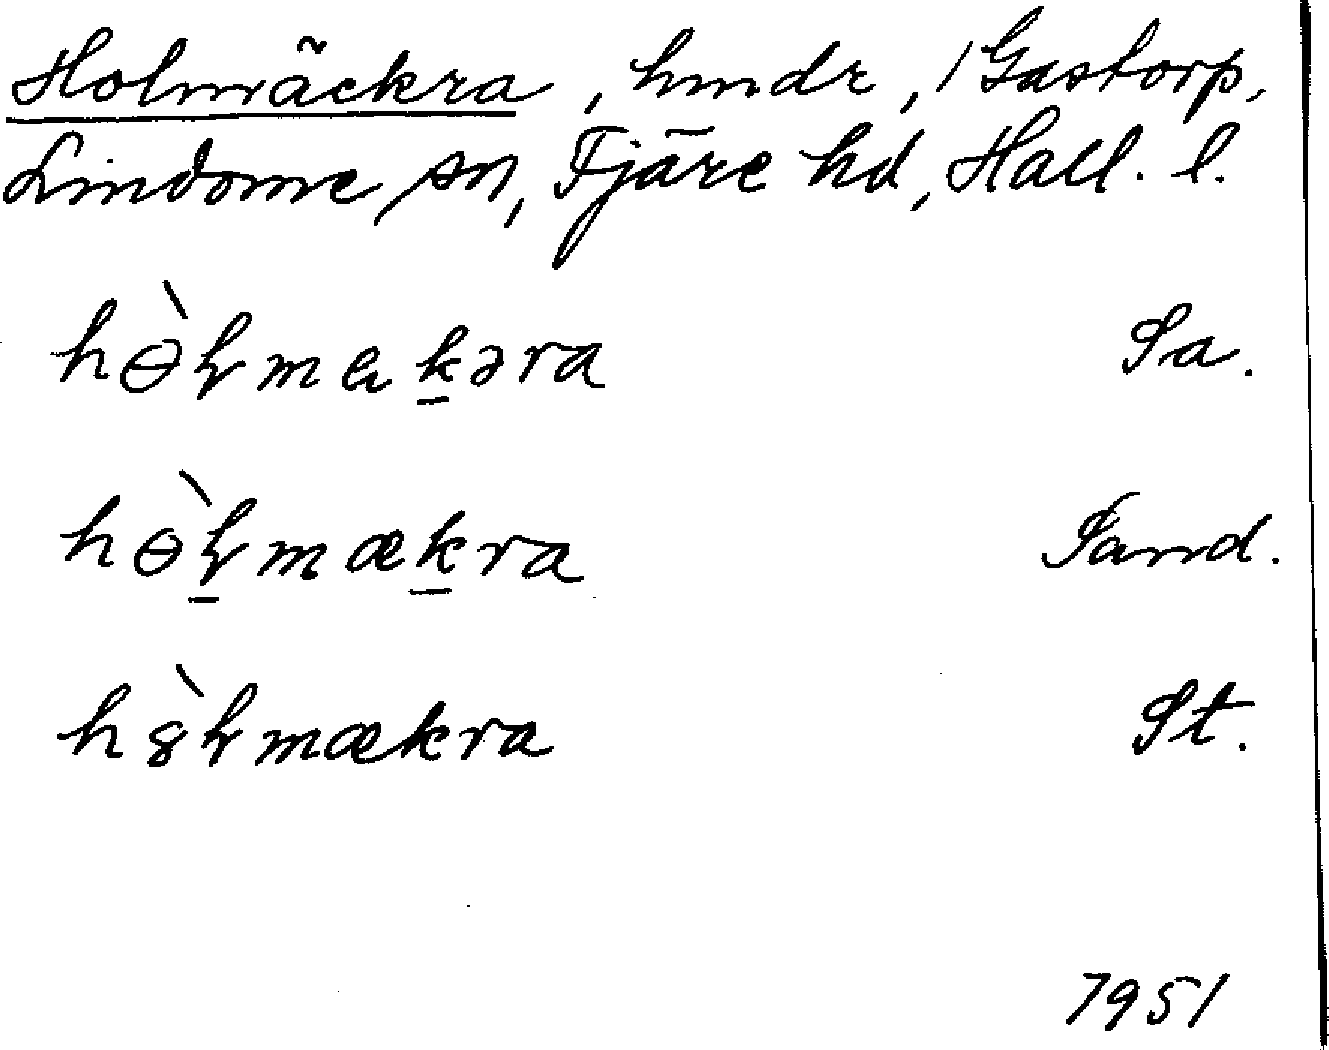 Holmäckra, hmdr, 1 Gastorp,
Lindome sn, Fjäre hd, Hall. l.
hɵ̀ɫmaḵəra Sa.
hɵ̀ɫ̱mæḵra Sand.
h8̀ɫmækra St.
7951